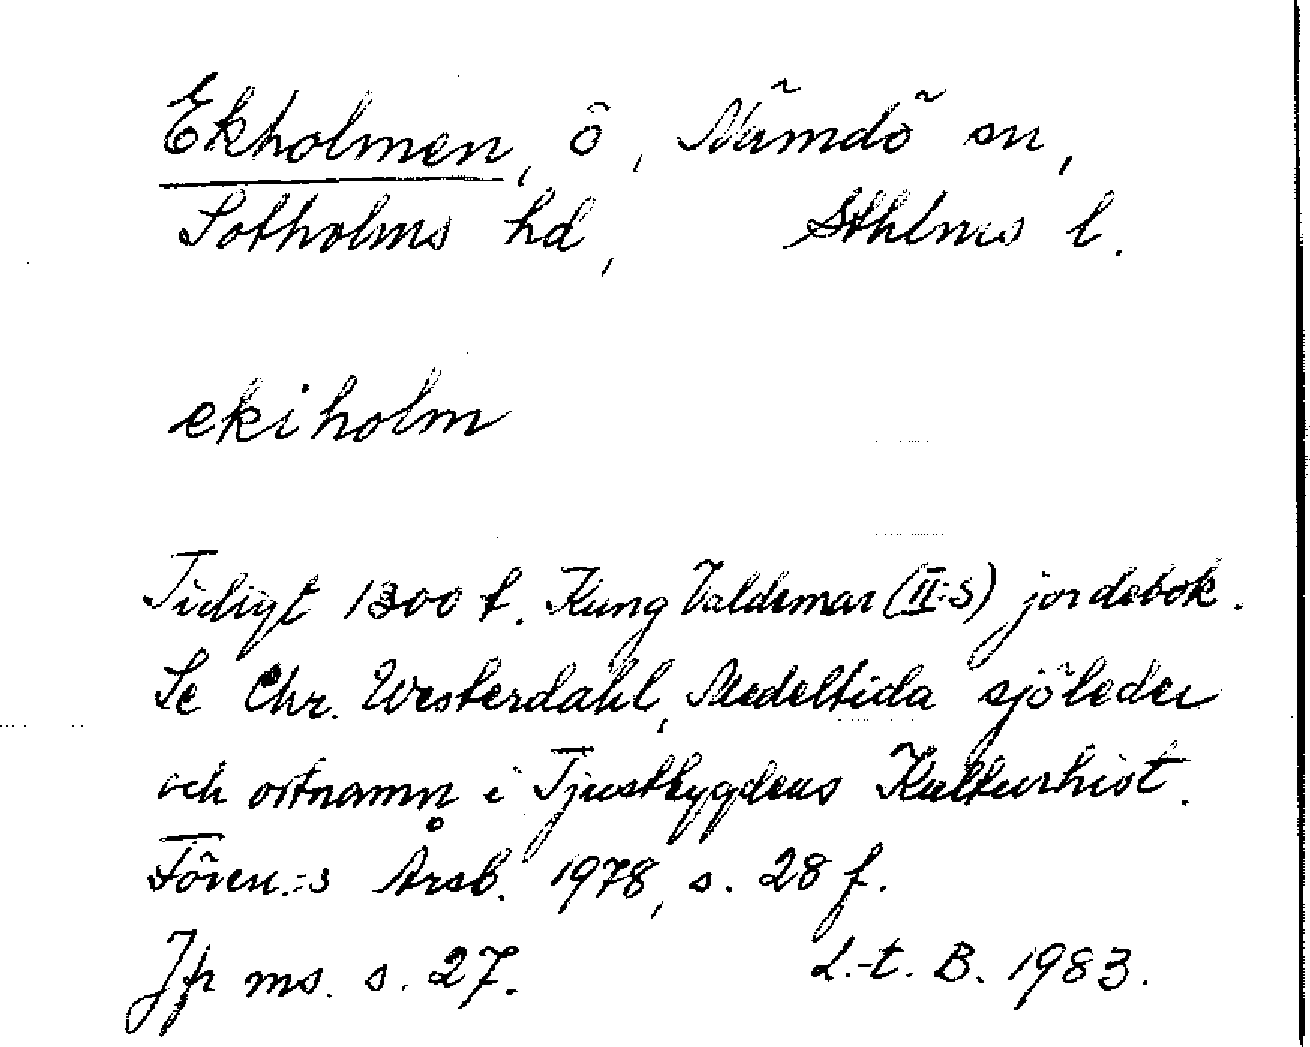 Ekholmen, ö, Nämdö sn,
Sotholms hd, Sthlms l.
ekiholm
Tidigt 1300 t. Kung Valdemar (II:s) jordebok.
Se Chr. Westerdahl, Medeltida sjöleder
och ortnamn i Tjustbygdens Kulturhist.
Fören.:s Årsb. 1978, s. 28 f.
Jfr ms. s. 27. L.-t. B. 1983.